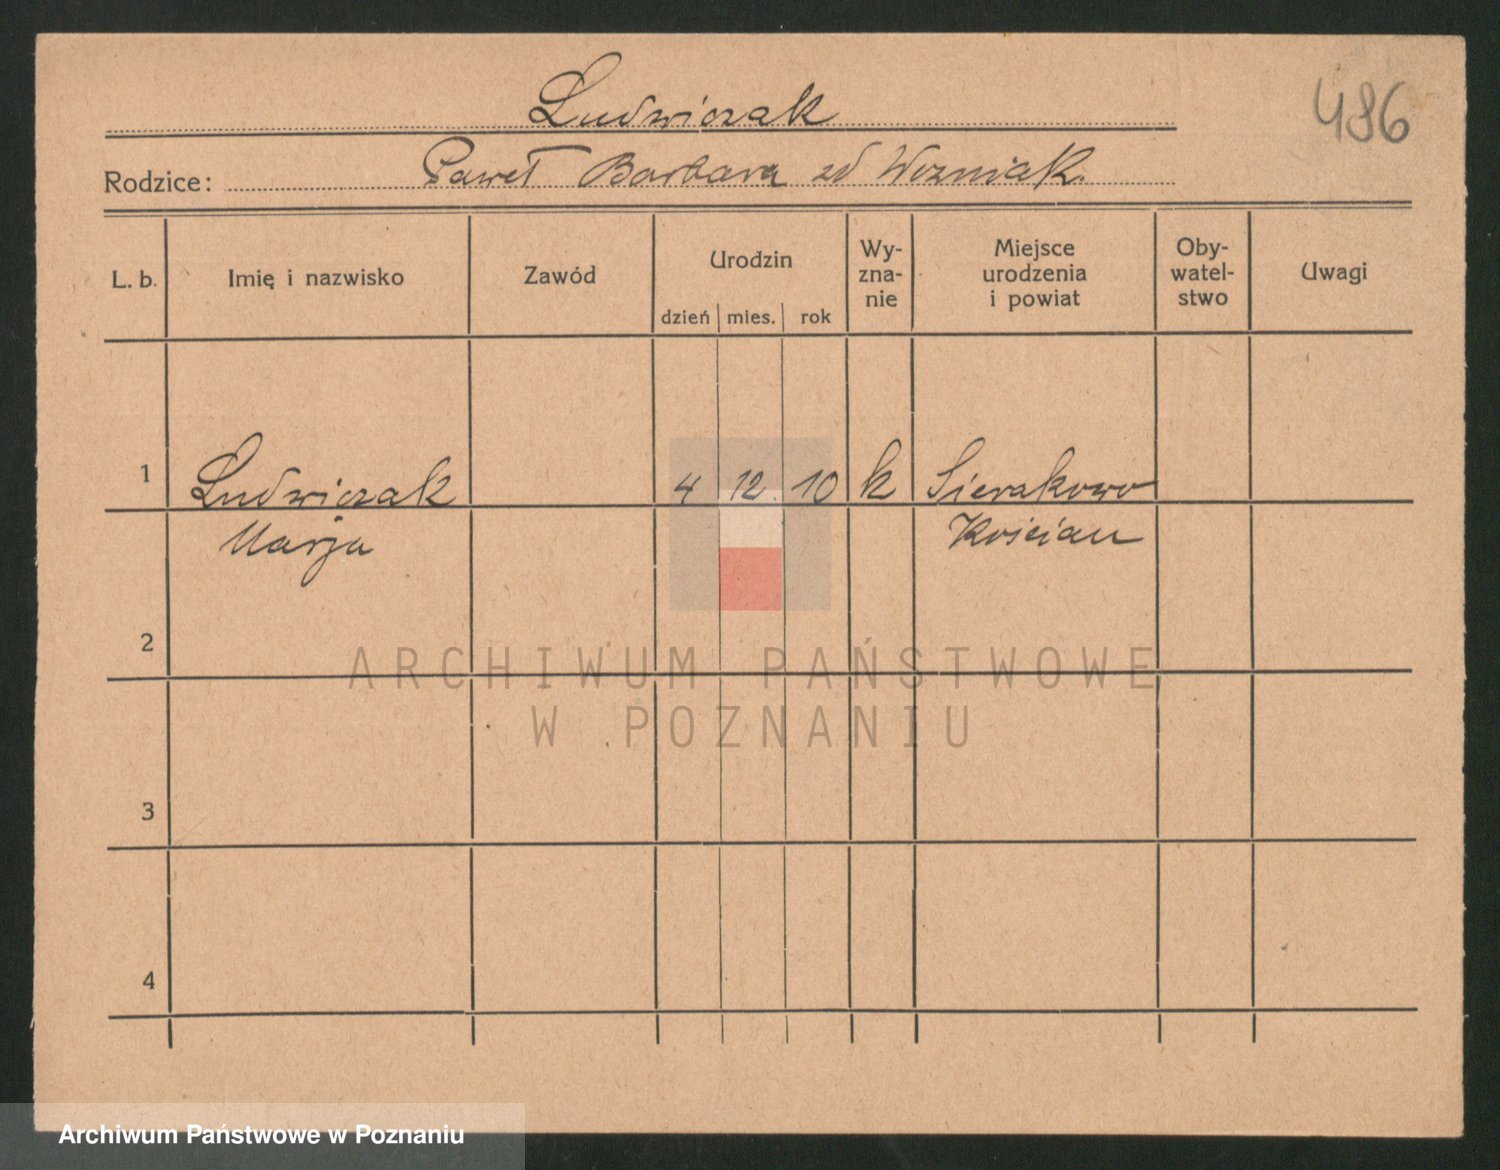 486
Ludwiczak
Rodzice: Paweł Barbara zd Wozniak.
L. b. Imię i nazwisko Zawód Urodzin Wy-zna-nie Miejsce urodzenia i powiat Oby-watel-stwo Uwagi
dzień mies. rok
1 Ludwiczak 4 12. 10 k Sierakowo
Marja Kościan
2
ARCHIWUM PAŃSTWOWE
W POZNANIU
3
4
Archiwum Państwowe w Poznaniu